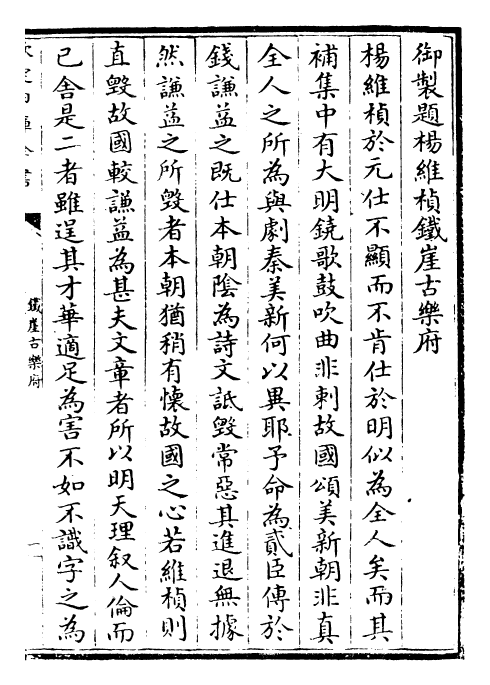 御製題楊維楨鐵崖古樂府
楊維楨於元仕不顯而不肯仕於明似為全人矣而其
補集中有大明鐃歌鼓吹曲非刺故國頌美新朝非真
全人之所為與劇秦美新何以異耶予命為貳臣傳於
錢謙益之既仕本朝陰為詩文詆毀常惡其進退無據
然謙益之所毀者本朝猶稍有懷故國之心若維楨則
直毀故國較謙益為甚夫文章者所以明天理叙人倫而
已舎是二者雖逞其才華適足為害不如不識字之為
鐵崖古樂府
一